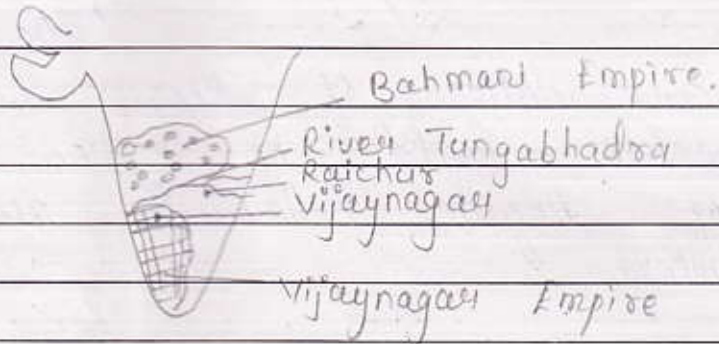 Bahmani Empire.
River Tungabhadra
Raichur
Vijaynagar
Vijaynagar Empire